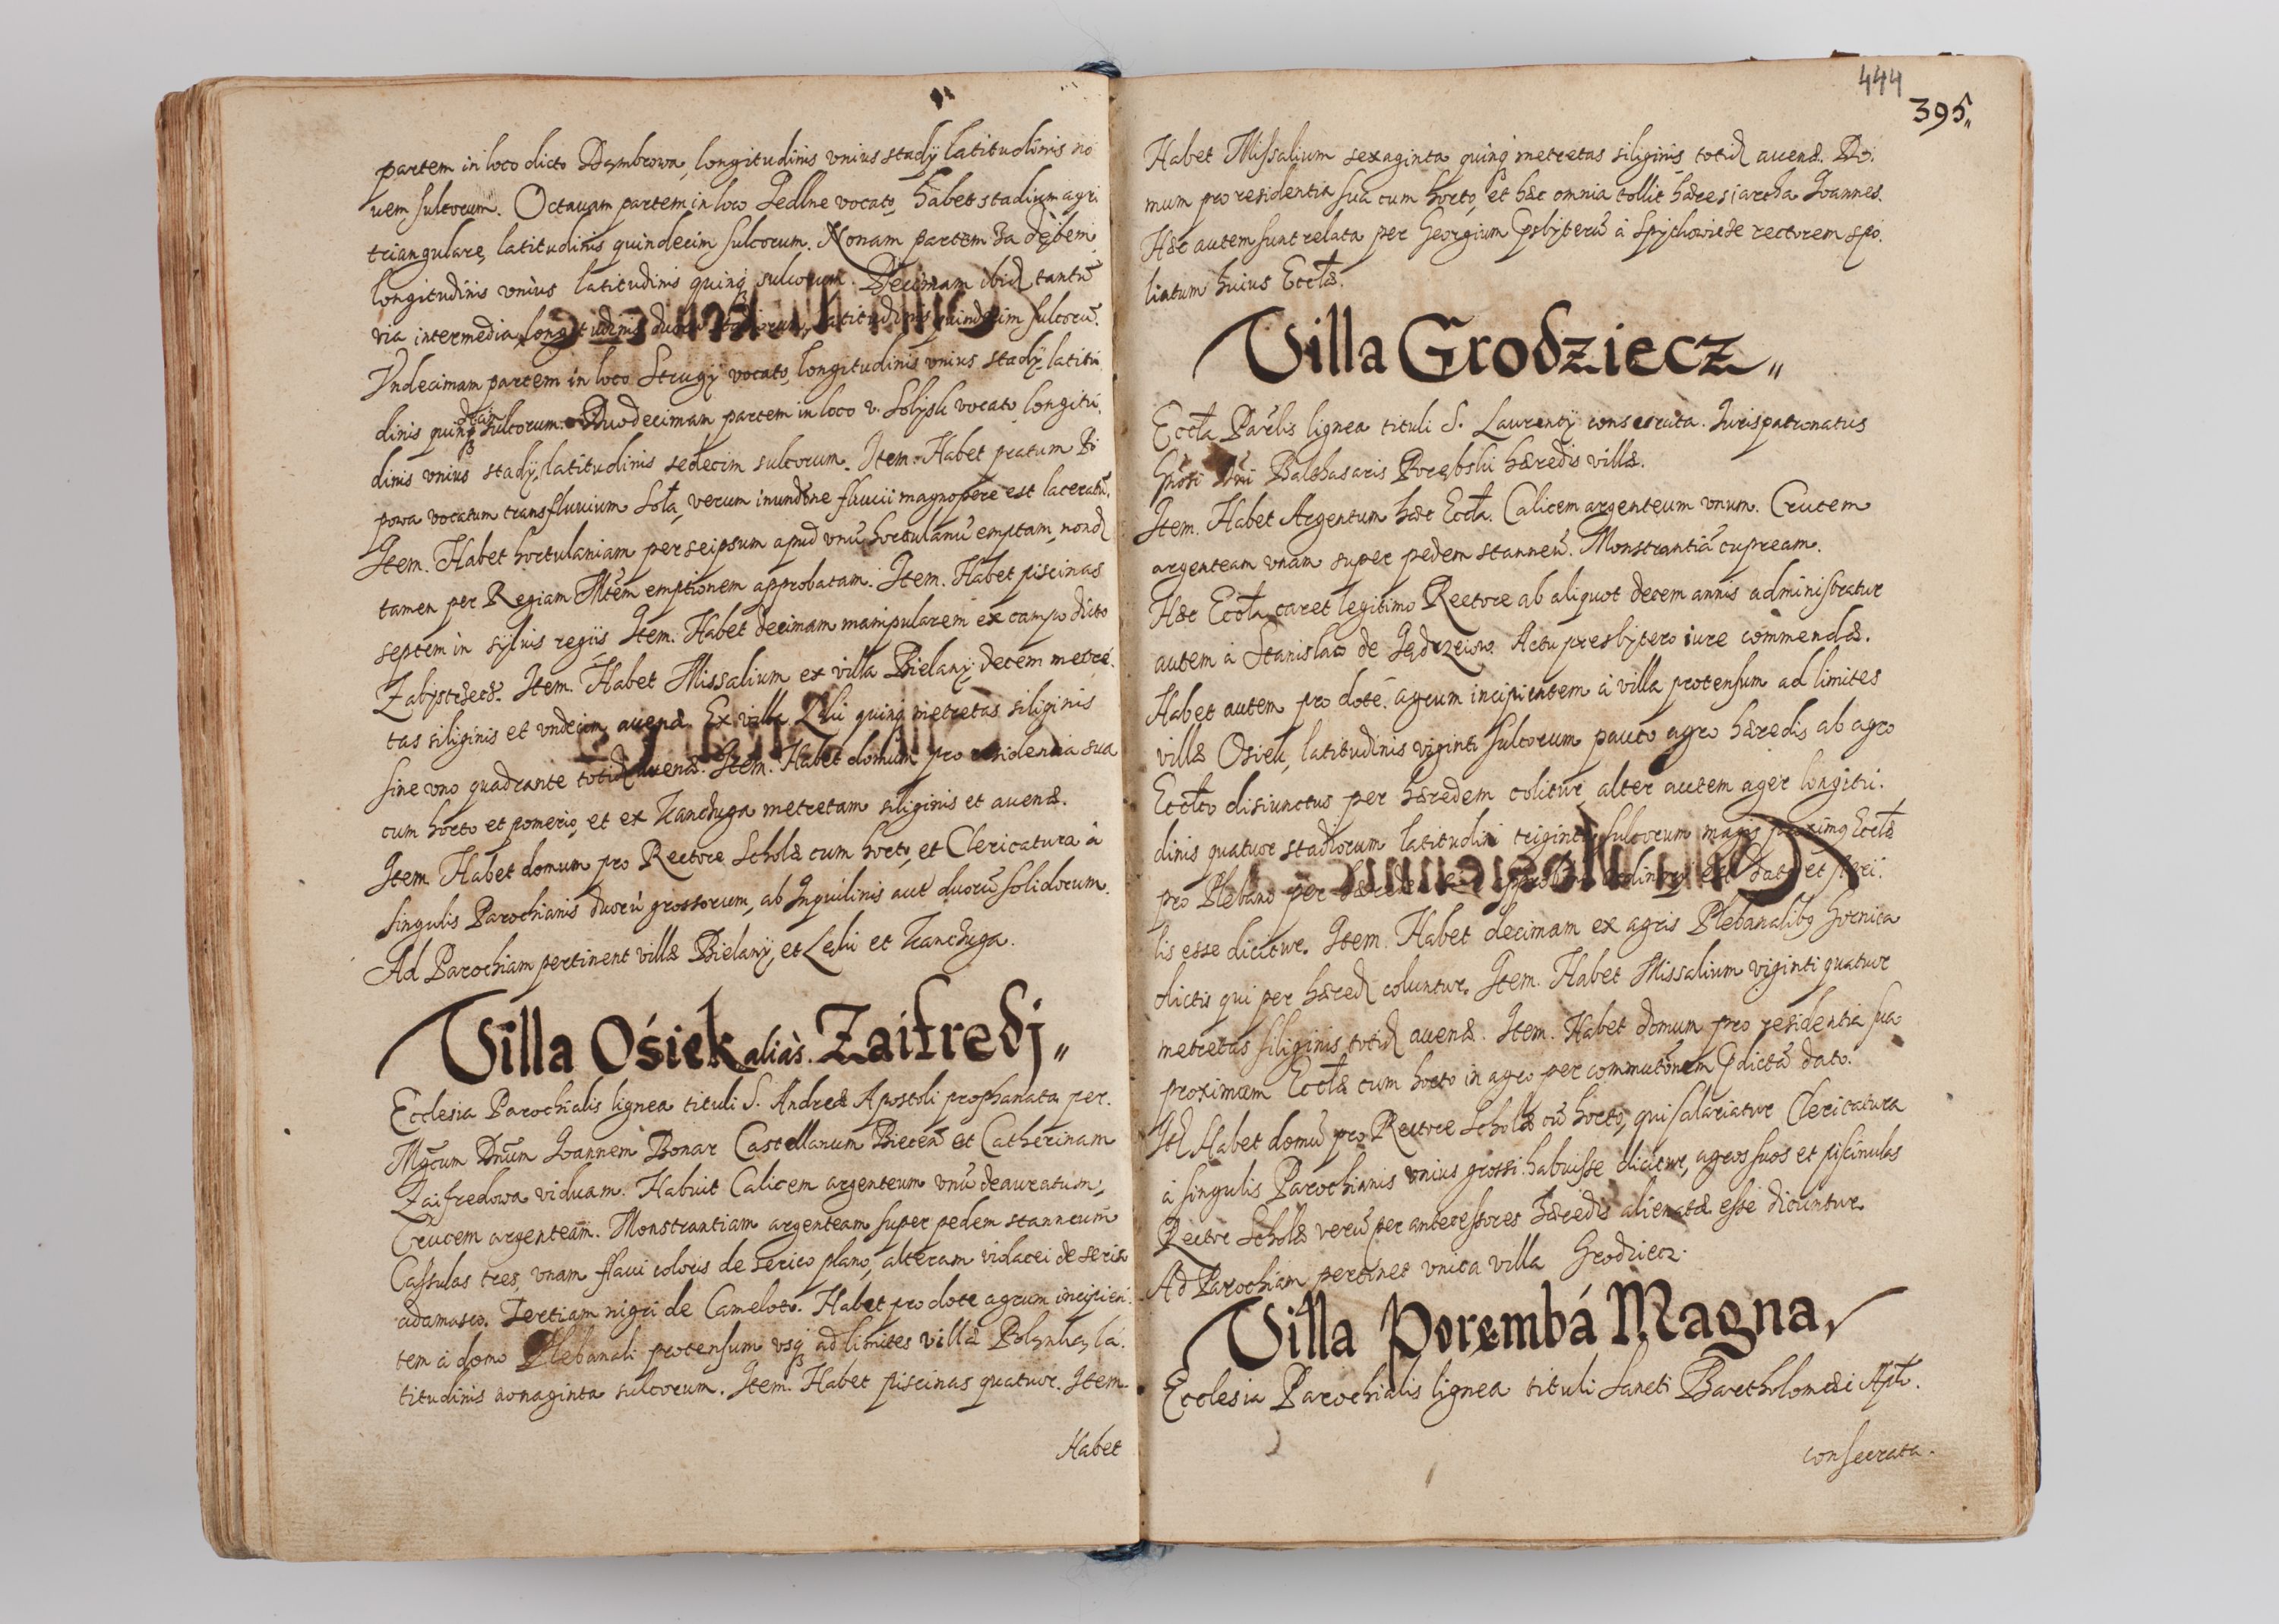 partem in loco dicto Dąmbrowa, longitudinis vnius stadÿ latitudinis no
uem sulcorum. Octauam partem in loco Jedlne vocato, habet stadium agri
triangulare, latitudinis quindecim sulcorum. Nonam partem Za dębem
longitudinis vnius latitudinis quinq sulcorum. Decimam ibid tantũ
via intermedia, longitudinis duorum stadiorum, latitudinis quindecim sulcorũ.
Vndecimam partem in loco Strugÿ vocato, longitudinis vnius stadÿ latitu
dinis quinq sulcorum. Duodecimam partem in loco v. Solÿsk vocato longitu
dinis vnius stadÿ, latitudinis sedecim sulcorum. Item. Habet pratum Bi
powa vocatum trans fluuium Soła, verum inundõne fluuii magnopere est laceratũ.
Item. Habet hortulaniam per seipsum apud vnũ hortulanũ emptam, nond
tamen per Regiam Mtẽm emptionem approbatam. Item. Habet piscinas
septem in sÿluis regÿs Item. Habet decimam manipularem ex campo dicto
Item. Habet Missalium ex villa Bielanÿ decem metre
tas siliginis et vndecim auenæ. Ex villa Lęki quinq metretas siliginis
sine vno quadrante totid auenæ. Item. Habet domum pro residentia sua
cum horto et pomerio, et ex Kanczuga metretam siliginis et auenæ.
Item Habet domum pro Rectore Scholæ cum horto, et Clericatura à
singulis Parochianis duorũ grossorum, ab Inquilinis aut duorũ solidorum.
Ad Parochiam pertinent villæ Bielanÿ, et Lęki et Kanczuga.
Villa Ośiek aliàs. Zaifredj
Ecclesia Parochialis lignea tituli S. Andreæ Apostoli prophanata per.
Mgcum Dnũm Joannem Bonar Castellanum Biecẽn et Catherinam
Zaifredowa viduam. Habuit Calicem argenteum vnũ deauratum,
Crucem argenteam. Monstrantiam argenteam super pedem stanneum
Cassulas tres, vnam flaui coloris de serico plano, alteram violacei de serico
adamasco. Tertiam nigri de Cameloto. Habet pro dote agrum incipien
tem à domo Plebanali protensum vsq ad limites villæ Poląnka, la
titudinis nonaginta sulcorum. Item. Habet piscinas quatuor. Item
Habet
444
395
Habet Missalium sexaginta quinq metretas siliginis totid auenæ. Do.
mum pro residentia sua cum horto, et hæc omnia tollit hæresiarcha Joannes.
Hæc autem sunt relata per Georgium Psbÿterũ à Spÿthowicze rectorem spo.
liatum huius Eccłæ.
Villa Grodziecz
Eccła Parłis lignea tituli S. Laurentÿ consecrata. Jurispatronatus
Gnõsi Dni Balthasaris Porębski hæredis villæ.
Item. Habet Argentum hæc Eccła. Calicem argenteum vnum. Crucem
argenteam vnam super pedem stanneũ. Monstrantiã cupream.
Hæc Eccła caret legitimo Rectore ab aliquot decem annis administratur
autem à Stanislao de Jędrzeiow. Actu presbÿtero iure commendæ.
Habet autem pro dote agrum incipientem à villa protensum ad limites
villæ Osiek, latitudinis viginti sulcorum pauco agro hæredis ab agro
Ecclto disiunctus per hæredem colitur, alter autem ager longitu.
dinis quatuor stadiorum latitudini triginta sulcorum magis proximq Eccłæ
pro Plebano per hæredem dato et steri.
lis esse dicitur. Item. Habet decimam ex agris Plebanalibq Gornica
dictis qui per hæred coluntur. Item. Habet Missalium viginti quatuor
metretas siliginis totid auenæ. Item. Habet domum pro residentia sua
proximam Eccłæ cum horto in agro per commutõnem pdictã dato.
Itẽ Habet domũ pro Rectore Scholæ cũ horto, qui salariatur Clericatura
à singulis Parochianis vnius grossi. habuisse dicitur, agros suos et piscinulas
Rector Scholæ verũ per antecessores hæredis alienatæ esse dicuntur
Ad Parochiam pertinet vnica villa Grodziecz.
Villa Porembá Magna
Ecclesia Parochialis lignea tituli Sancti Bartholomæi Apłi.
consecrata.